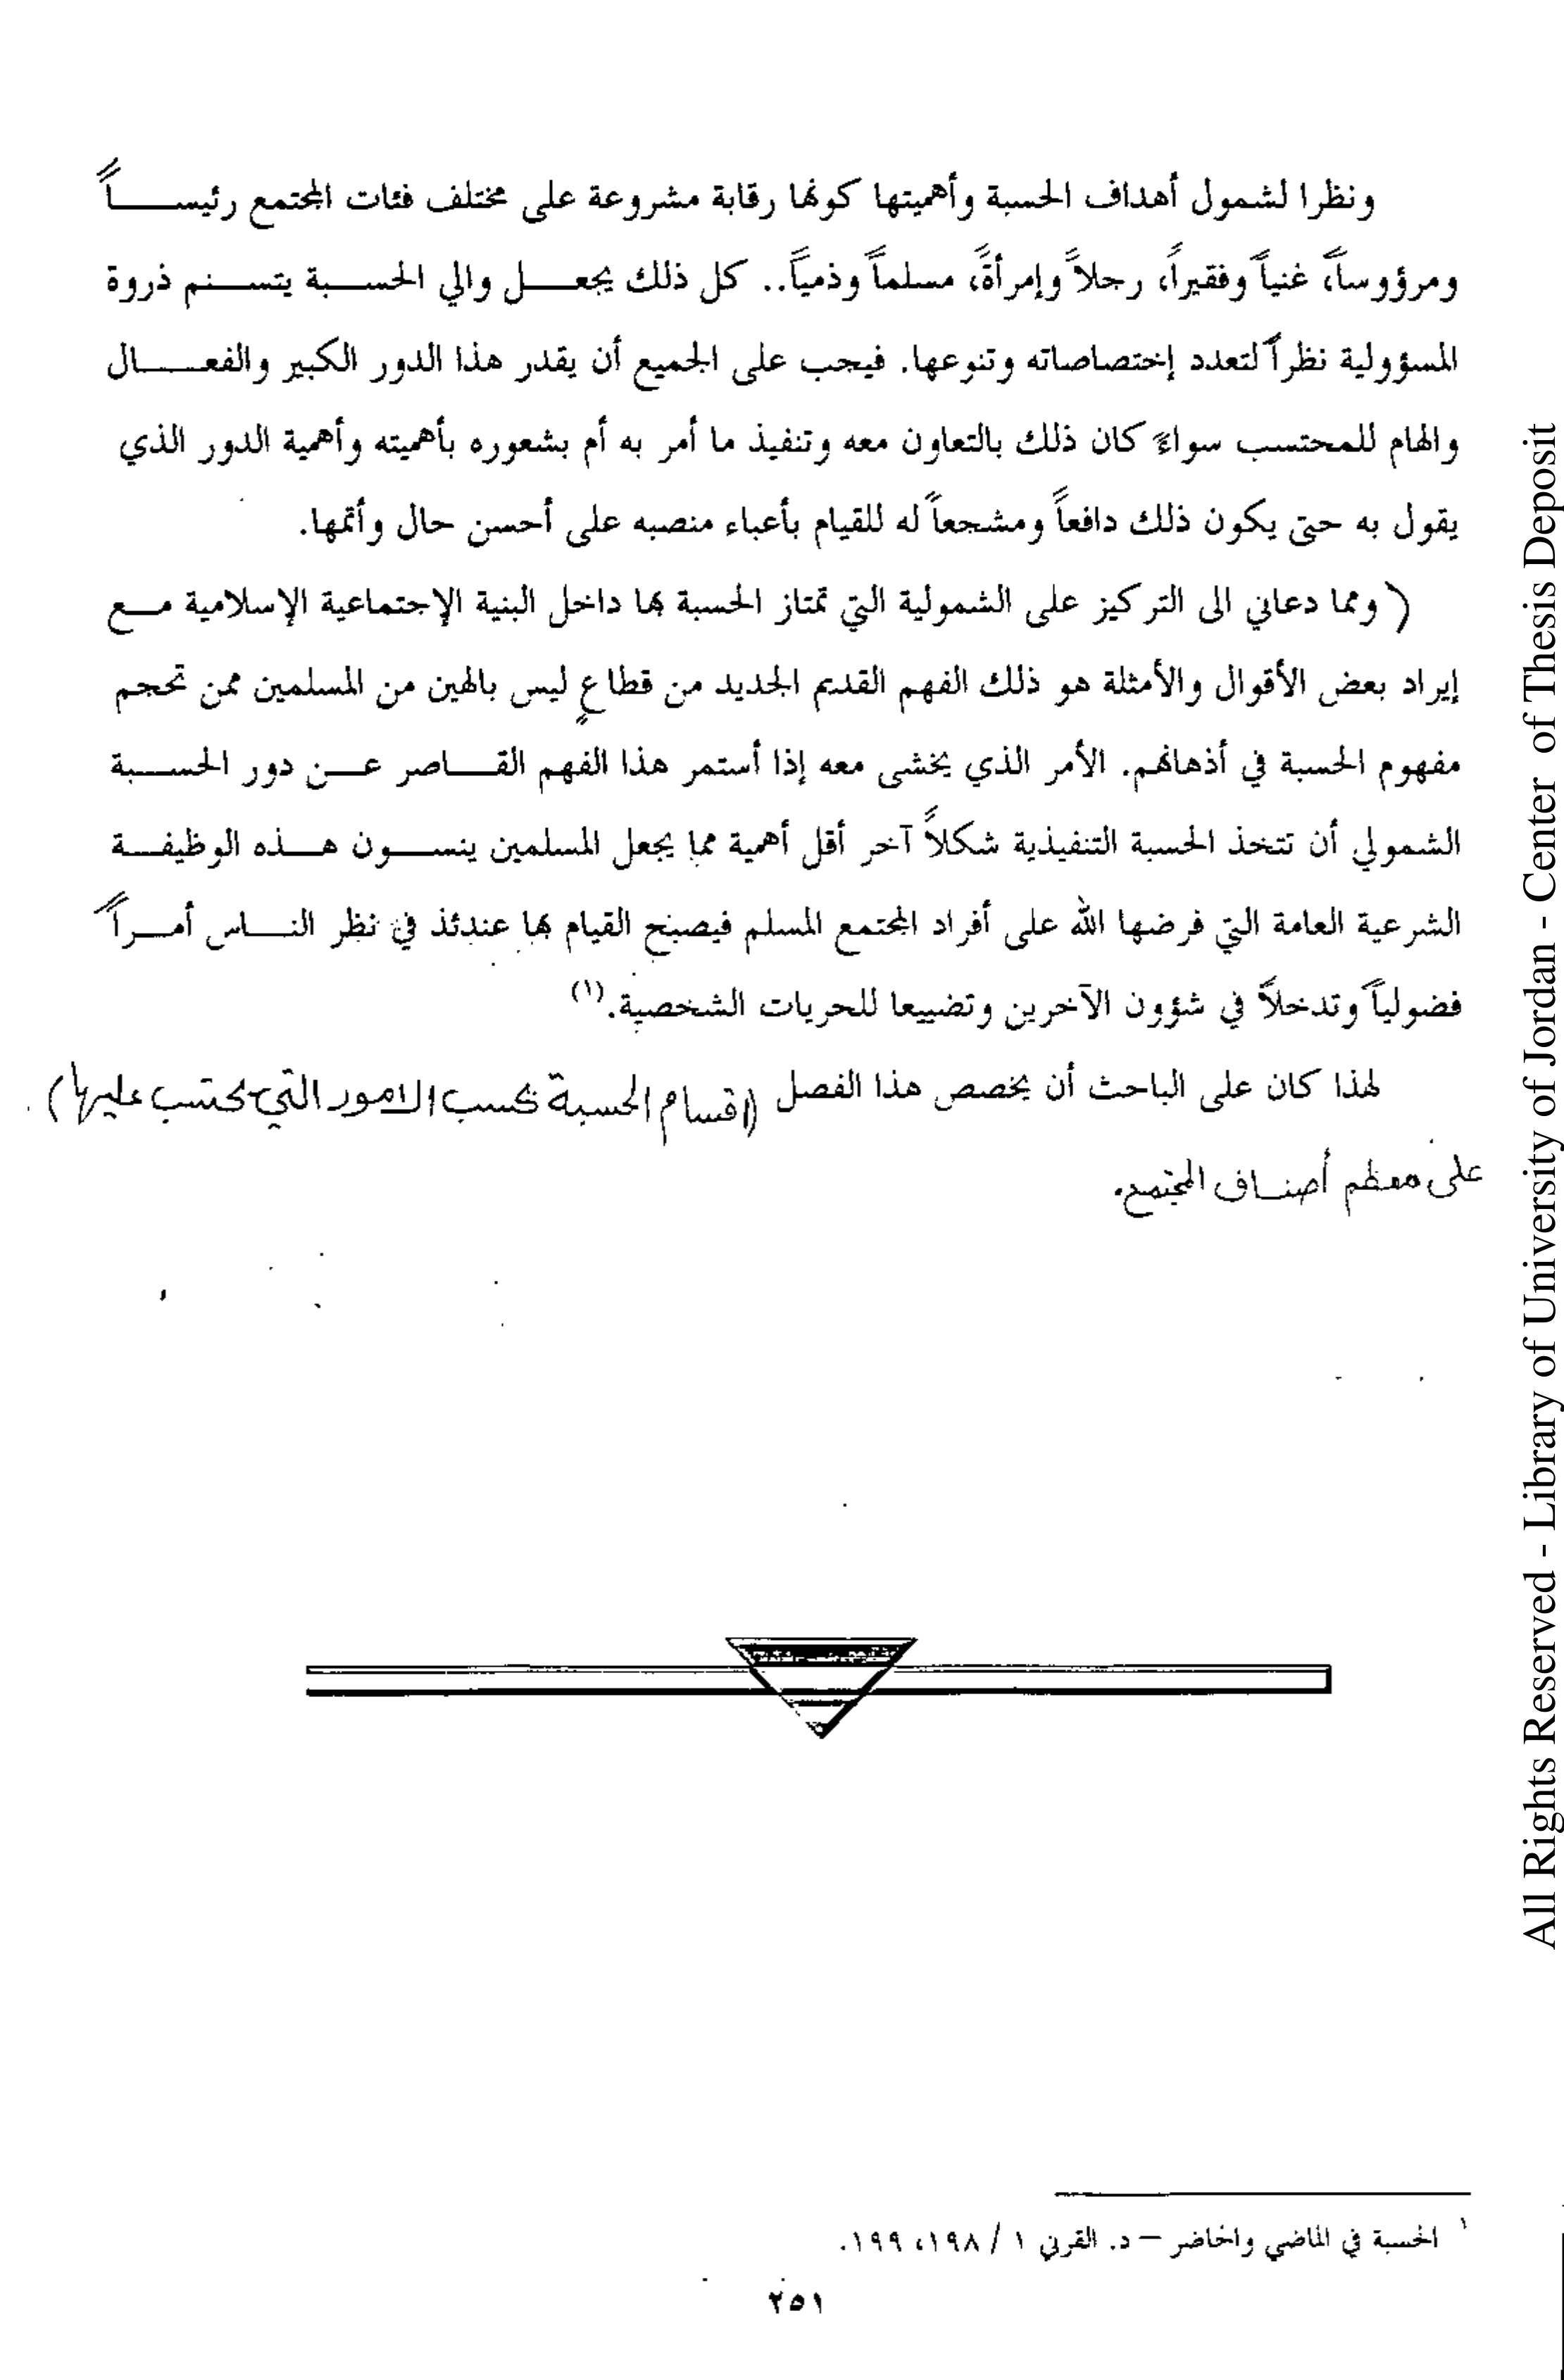 ونظرا لشمول أهداف الحسبة وأهميتها كونها رقابة مشروعة على مختلف فئات المجتمع رئيســـــاً
ومرؤوساً، غنياً وفقيراً، رجلاً وإمرأةً، مسلماً وذمياً.. كل ذلك يجعــــل والي الحســـبة يتســـنم ذروة
المسؤولية نظراً لتعدد إختصاصاته وتنوعها. فيجب على الجميع أن يقدر هذا الدور الكبير والفعـــــال
والهام للمحتسب سواءً كان ذلك بالتعاون معه وتنفيذ ما أمر به أم بشعوره بأهميته وأهمية الدور الذي
يقول به حتى يكون ذلك دافعاً ومشجعاً له للقيام بأعباء منصبه على أحسن حال وأتمها.
( ومما دعاني الى التركيز على الشمولية التي تمتاز الحسبة بها داخل البنية الإجتماعية الإسلامية مـــع
إيراد بعض الأقوال والأمثلة هو ذلك الفهم القديم الجديد من قطاعٍ ليس بالهين من المسلمين ممن تحجم
مفهوم الحسبة في أذهانهم. الأمر الذي يخشى معه إذا أستمر هذا الفهم القـــاصر عـــن دور الحســـبة
الشمولي أن تتخذ الحسبة التنفيذية شكلاً آخر أقل أهمية مما يجعل المسلمين ينســـون هـــذه الوظيفـــة
الشرعية العامة التي فرضها الله على أفراد المجتمع المسلم فيصبح القيام بها عندئذ في نظر النـــاس أمـــراً
فضولياً وتدخلاً في شؤون الآخرين وتضييعا للحريات الشخصية.(١)
لهذا كان على الباحث أن يخصص هذا الفصل (اقسام الحسبة بحسب الامور التي يحتسب عليها)
على معظم أصناف المجتمع.
١ الحسبة في الماضي والحاضر – د. القرني ١ / ١٩٨، ١٩٩.
٢٥١
All Rights Reserved - Library of University of Jordan - Center of Thesis Deposit